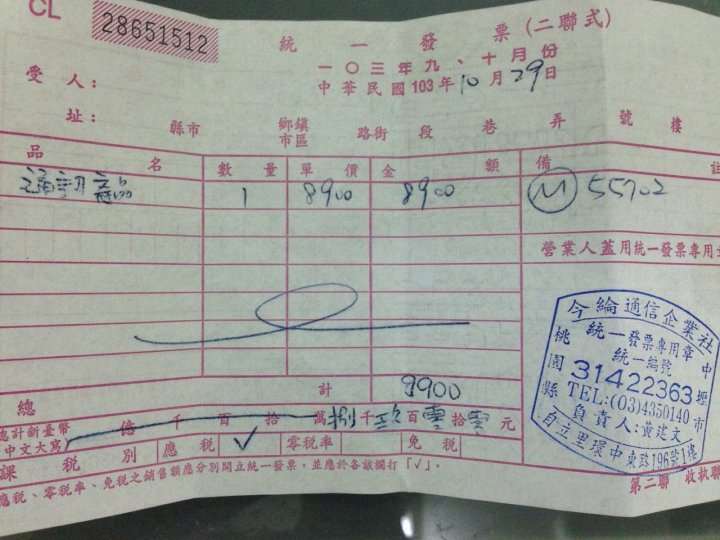 CL 28651512
統一發票(二聯式)
一〇三年九、十月份
中華民國103年10月29日
受人:
址: 縣市 鄉鎮市區 路街 段 巷 弄 號 樓
品名 數量 單價 金額 備註
通訊產品 1 8900 8900 M 55702
營業人蓋用統一發票專用
總計 8900
總計新臺幣
中文大寫 億千百拾萬捌千玖百零拾零元
課稅別 應稅 √ 零稅率 免稅
應稅、零稅率、免稅之銷售額應分別開立統一發票,並應於各該欄打「√」。
第二聯 收執聯
今綸通信企業社
統一發票專用章
統一編號
31422363
TEL:(03)4350140
負責人:黃建文
桃園縣中壢市
自立里環中東路196號1樓